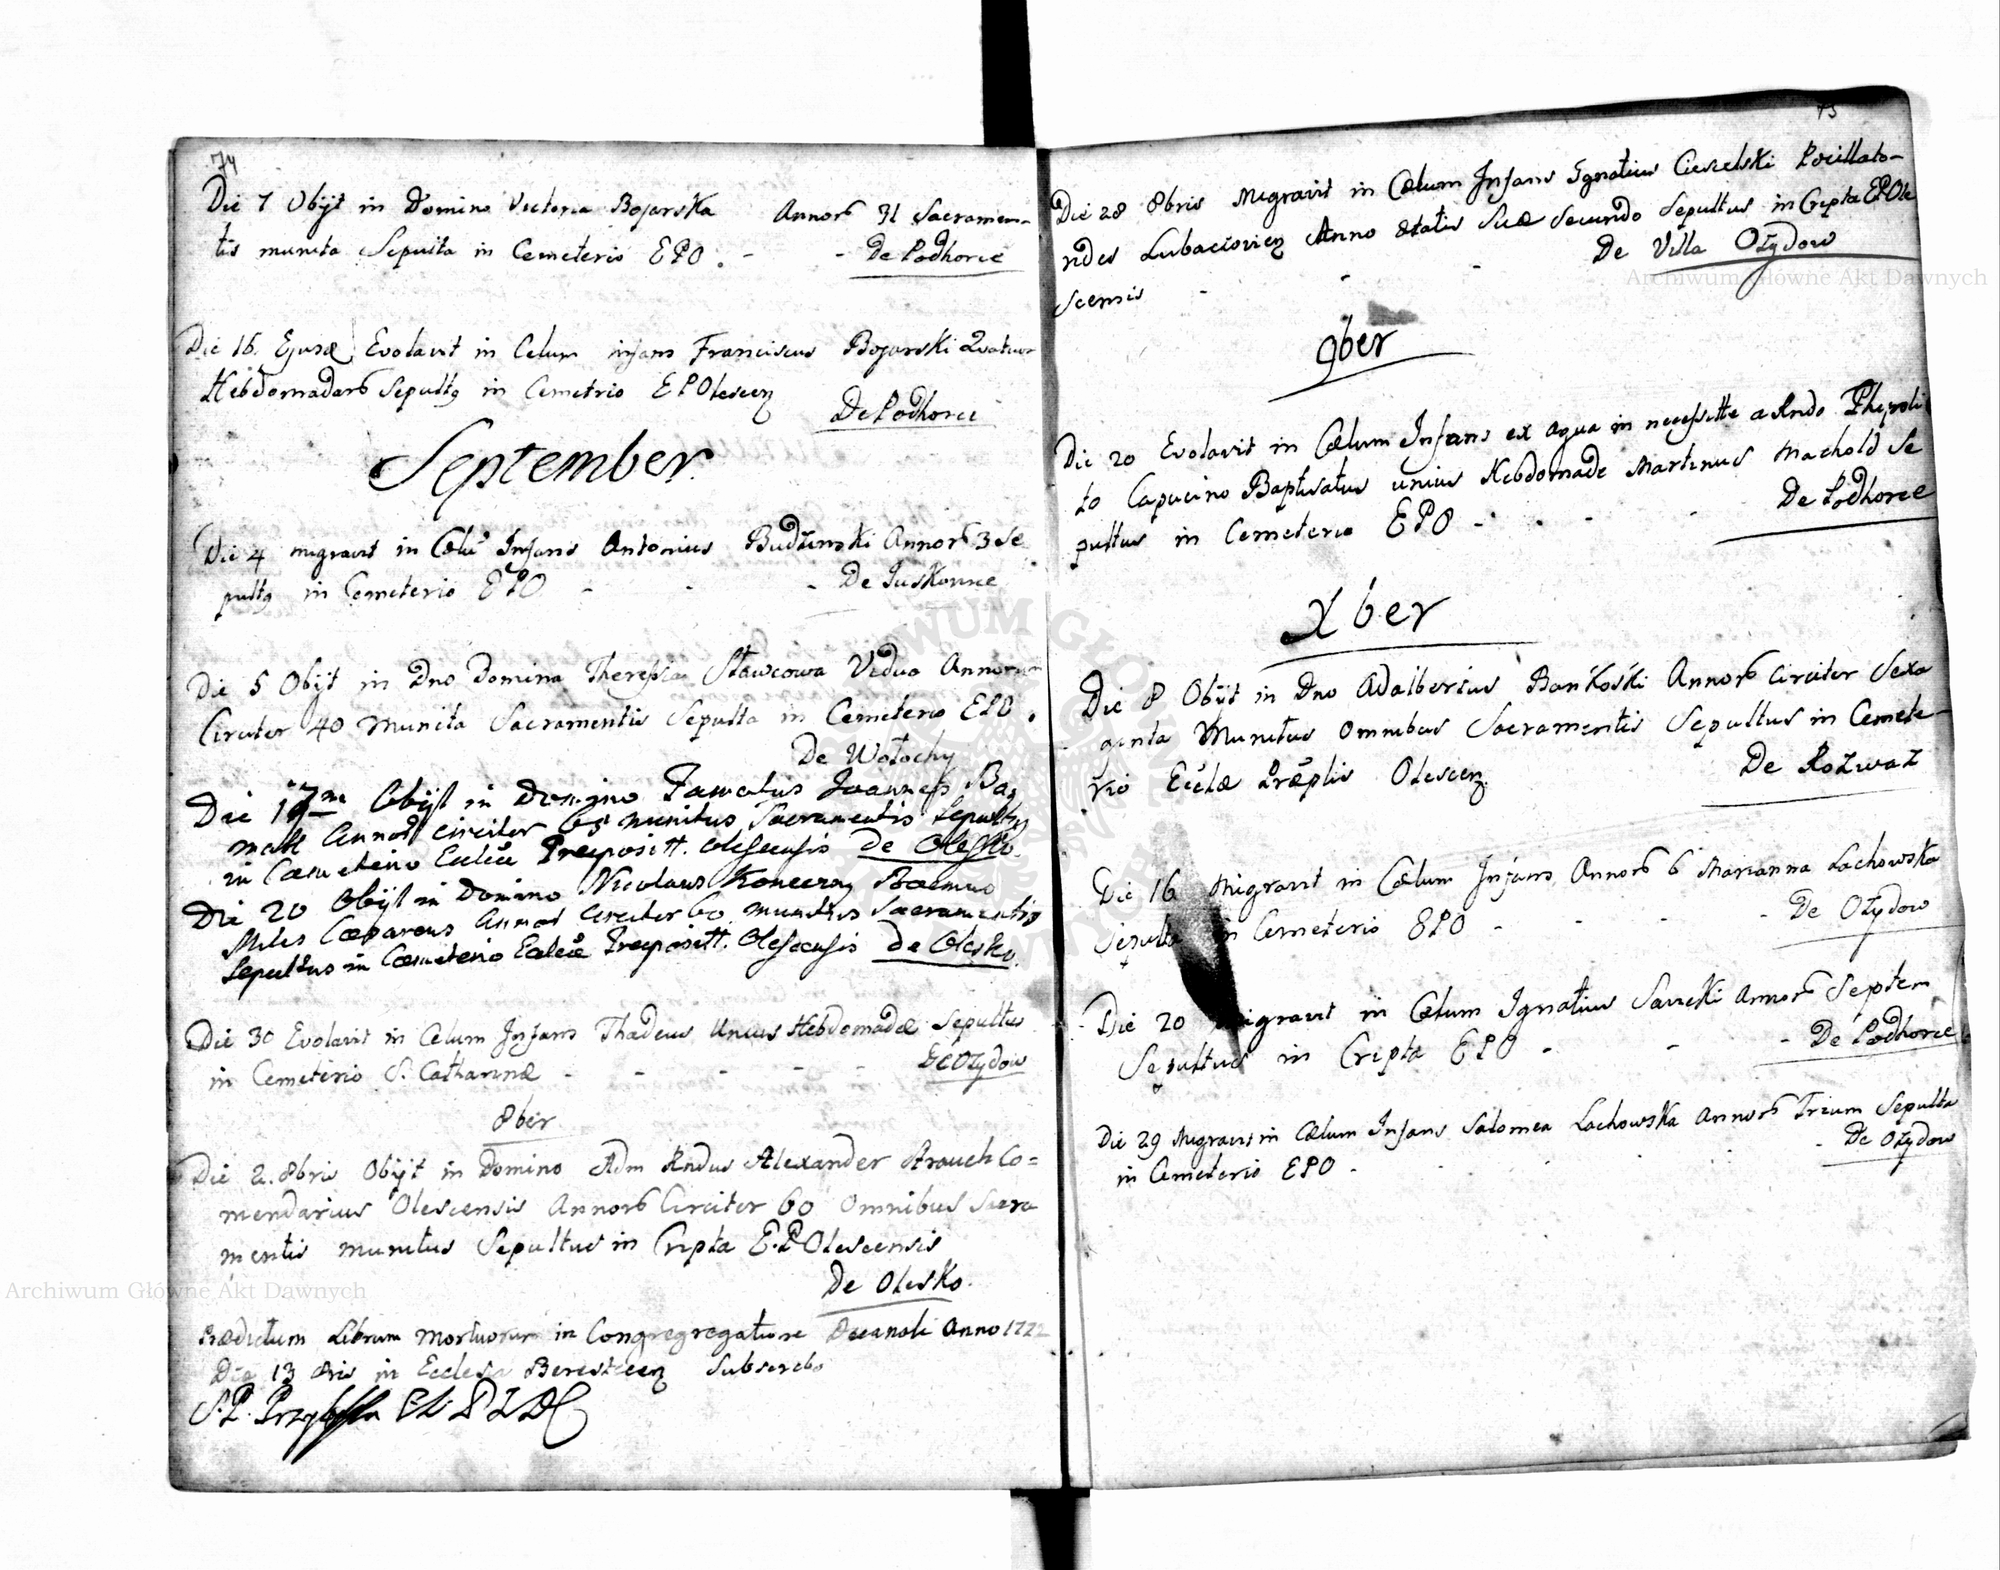 74
Die 7 Obijt in Domino Victoria Bojarska Annor 31 Sacramen-
tis munita Sepulta in Cemeterio EPO. - - De Podhorce
Die 16. Evolavit in Celum infans Franciscus Bojarski Quatuor
Hebdomadar Sepultg in Cemetrio E P Olescen
De Podhorce
September
Die 4 migravit in Cælu Infans Antonius Annor 3 Se
pultg in Cemeterio EPO - - - De
Die 5 Obijt in Dno Domina Theressia Stawcowa Vidua Annorum
Circiter 40 Munita Sacramentis Sepulta in Cemeterio EPO.
De Wołochy
Die 17ma Obijt in Domino Famatus Joannes
Annor circiter 65 munitus Sacramentis Sepultg
in Cæmeterio Eccleæ Præpositt. Olescensis de Olesko.
Die 20 Obijt in Domino Nicolaus Koneczny
Miles Cæsareus Annor circiter 60 munitus Sacramentis
Sepultus in Cæmeterio Eccleæ Præpositt. Olescensis de Olesko.
Die 30 Evolavit in Cælum Infans Thadeus Unius Hebdomadæ Sepultus
in Cemeterio S. Catharinæ - - - - - De Ożydow
8ber
Die 2. 8bris Obijt in Domino Adm Rndus Alexander Strauch Co=
mendarius Olescensis Annor Circiter 60 Omnibus Sacra
mentis munitus Sepultus in Cripta E.P Olescensis
De Olesko.
Prædictum Librum Mortuorum in Congregregatione Decanali Anno 1772
Die 13 in Ecclesia Subscribo
75
Die 28 8bris Migravit in Cælum Infans Ignatius Ciesielski Pocillato-
Anno ætatis Suæ Secundo Sepultus in Cripta EPOle
scensis - - - De Villa Ożydow
9ber
Die 20 Evolavit in Cælum Infans ex aqua in necessitte a Rndo
to Capucino Baptisatus unius Hebdomade Martinus Machold Se
pultus in Cemeterio EPO - - - - De Podhorce
Xber
Die 8 Obijt in Dno Adalbertus Bańkoski Annor Circiter Sexa
ginta Munitus Omnibus Sacramentis Sepultus in Cemete-
rio Ecclæ Præptis Olescen. De Rożważ
Die 16 Migravit in Cælum Infans Annor 6 Marianna Lachowska
Sepulta in Cemeterio EPO - - - - De Ożydow
Die 20 Migravit in Cælum Ignatius Annor Septem
Sepultus in Cripta EPO - - - De Podhorce
Die 29 Migravit in Cælum Infans Salomea Lachowska Annor Trium Sepulta
in Cemeterio EPO - - De Ożydow
Archiwum Główne Akt Dawnych
Archiwum Główne Akt Dawnych